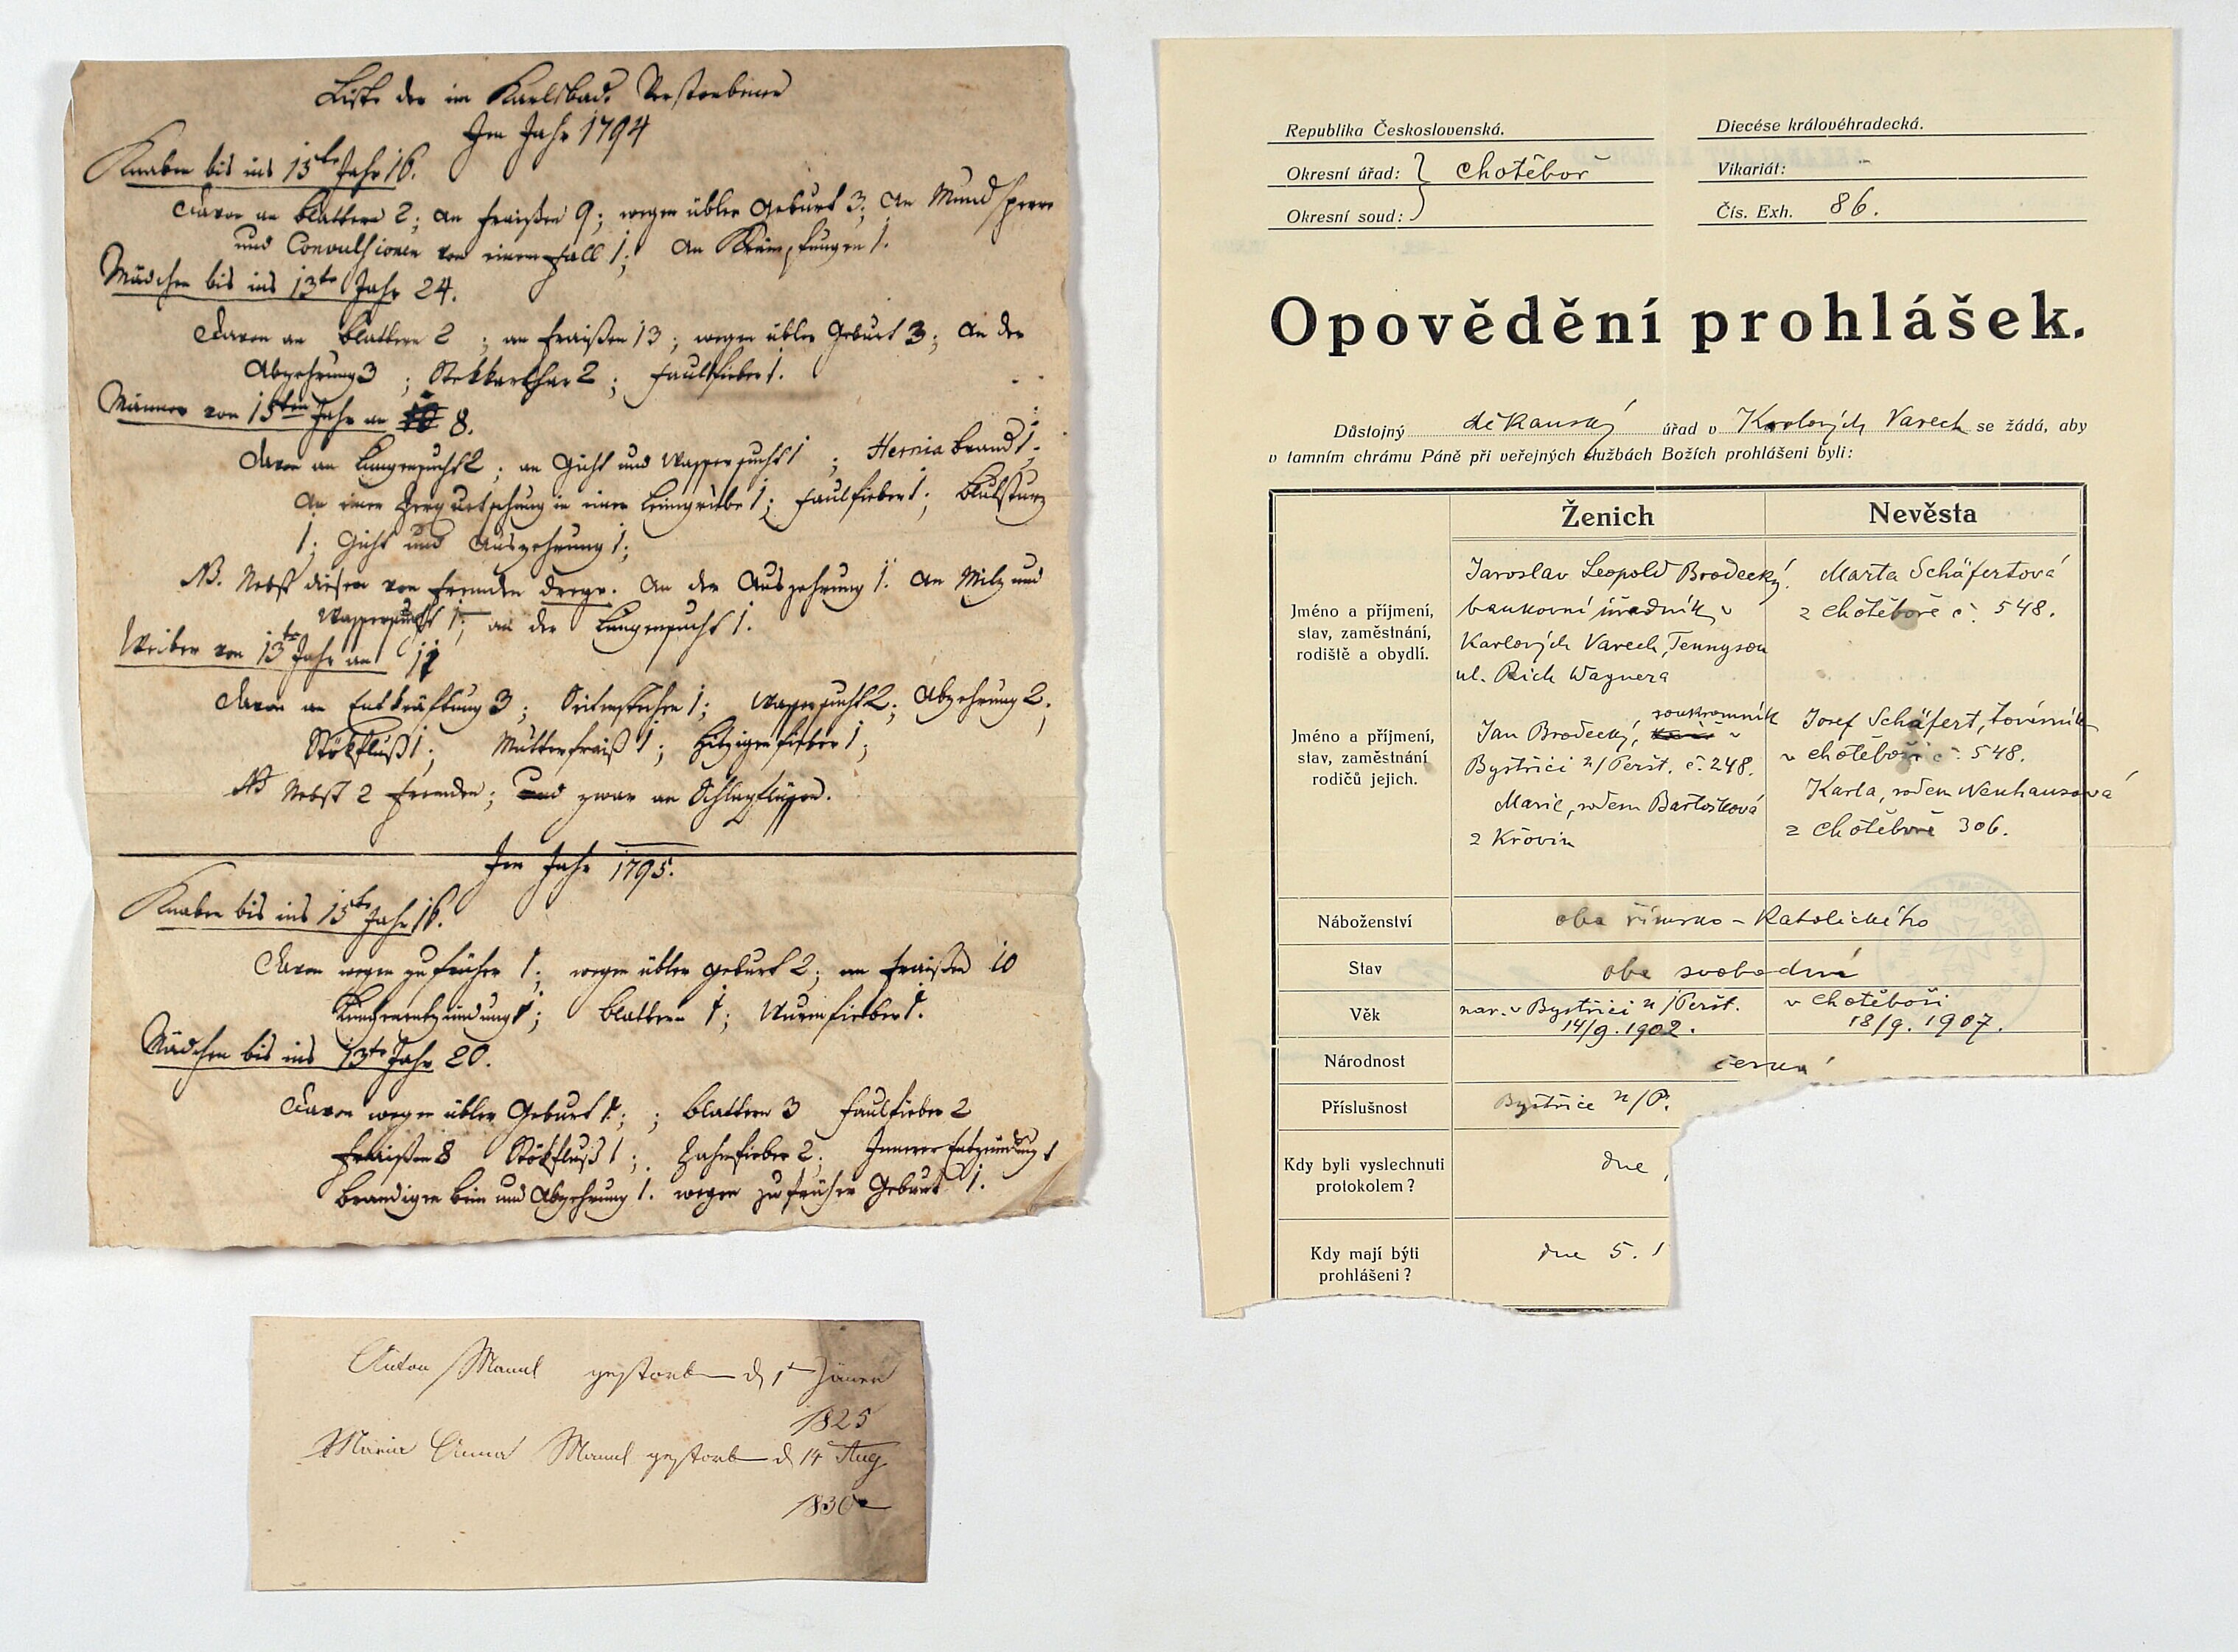 Liste der im Karlsbad. Verstorbenen
Im Jahr 1794
Knaben bis ins 15te Jahr 16.
Davon an Blattern 2; an Fraißen 9; wegen übler Geburt 3; An Mundsperre
und Convulsionen von einem Fall 1; An Krämpfungen 1.
Mädchen bis ins 13te Jahr 24.
Davon an Blattern 2; an Fraißen 13; wegen übler Geburt 3; An der
Abzehrung 3; Stekkarthar 2; Faulfieber 1.
Männer von 15ten Jahr an 8.
Davon an Lungensucht 2; an Gicht und Wassersucht 1; Hernia brand 1.
An einer Zerquetschung in einer Leimgrube 1; Faulfieber 1; Blutsturz
1; Gicht und Auszehrung 1;
NB. Nebst diesen von Fremden dreye. An der Auszehrung 1. An Milz und
Wassersucht 1; an der Lungensucht 1.
Weiber von 13te Jahr an
Davon an Entkräftung 3; Seitenstechen 1; Wassersucht 2; Abzehrung 2;
Stökfluß 1; Mutterfraiß 1; Hitzigen fieber 1;
NB Nebst 2 Fremden; und zwar an Schlagflüssen.
Im Jahr 1795.
Knaben bis ins 15te Jahr 16.
Davon wegen zu früher 1; wegen übler geburt 2; an Fraißen 10
Lungenentzündung 1; Blattern 1; Wurmfieber 1.
Mädchen bis ins 13te Jahr 20.
Davon wegen übler Geburt 1; ; Blattern 3 Faulfieber 2
Fraißen 8 Stökfluß 1; Zahnfieber 2; Innerer Entzündung 1
Brandigen bein und Abzehrung 1. wegen zu früher Geburt 1.
Anton Mannl gestorb d 1t Jäner
1825
Maria Anna Mannl gestorb d 14 Aug
1830
Republika Československá.
Okresní úřad: } Chotěboř
Okresní soud:
Diecése královéhradecká.
Vikariát: –
Čís. Exh. 86.
Opovědění prohlášek.
Důstojný děkanský úřad v Karlových Varech se žádá, aby
v tamním chrámu Páně při veřejných službách Božích prohlášeni byli:
Ženich
Nevěsta
Jméno a příjmení,
stav, zaměstnání,
rodiště a obydlí.
Jaroslav Leopold Brodecký,
bankovní úředník v
Karlových Varech, Tennyson
ul. Rich Wagnera
Marta Schäfertová
z Chotěboře č. 548.
Jméno a příjmení,
stav, zaměstnání
rodičů jejich.
soukromník
Jan Brodecký, v
Bystřici n/Peršt. č. 248.
Marie, rodem Bartošková
z Křovin
Josef Schäfert, továrník
v Chotěboři č. 548.
Karla, rodem Neuhausová
z Chotěboře 306.
Náboženství
oba římsko – katolického
Stav
oba svobodní
Věk
nar. v Bystřici n/Peršt.
14/9. 1902.
v Chotěboři
18/9. 1907.
Národnost
česká
Příslušnost
Bystřice n/P.
Kdy byli vyslechnuti
protokolem?
dne
Kdy mají býti
prohlášeni?
dne 5. 1